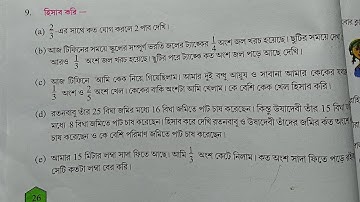 9. হিসাব করি —
(a) 2/3 -এর সাথে কত যোগ করলে 2 পাব দেখি।
(b) আজ টিফিনের সময়ে স্কুলের সম্পূর্ণ ভরতি জলের ট্যাঙ্কের 1/4 অংশ জল খরচ হয়েছে। ছুটির সময়ে দেখি
আরও 1/3 অংশ জল খরচ হয়েছে। ছুটির পরে ট্যাঙ্কে কত অংশ জল পড়ে আছে দেখি।
(c) আজ টিফিনে আমি কেক নিয়ে গিয়েছিলাম। আমার দুই বন্ধু আয়ুষ ও সাবানা আমার কেকের যথা
1/3 অংশ ও 2/5 অংশ খেল। কেকের বাকি অংশটা আমি খেলাম। কে বেশি কেক খেল হিসাব করি।
(d) রতনবাবু তাঁর 25 বিঘা জমির মধ্যে 16 বিঘা জমিতে পাট চাষ করেছেন। কিন্তু উষাদেবী তাঁর 15 বিঘা
মধ্যে 8 বিঘা জমিতে পাট চাষ করেছেন। হিসাব করে দেখি রতনবাবু ও উষাদেবী তাঁদের জমির কত অংশে
চাষ করেছেন ও কে বেশি পরিমাণ জমিতে পাট চাষ করেছেন।
(e) আমার 15 মিটার লম্বা সাদা ফিতে আছে। আমি 1/3 অংশ কেটে নিলাম। কত অংশ সাদা ফিতে পড়ে
সেটি কতটা লম্বা বের করি।
26